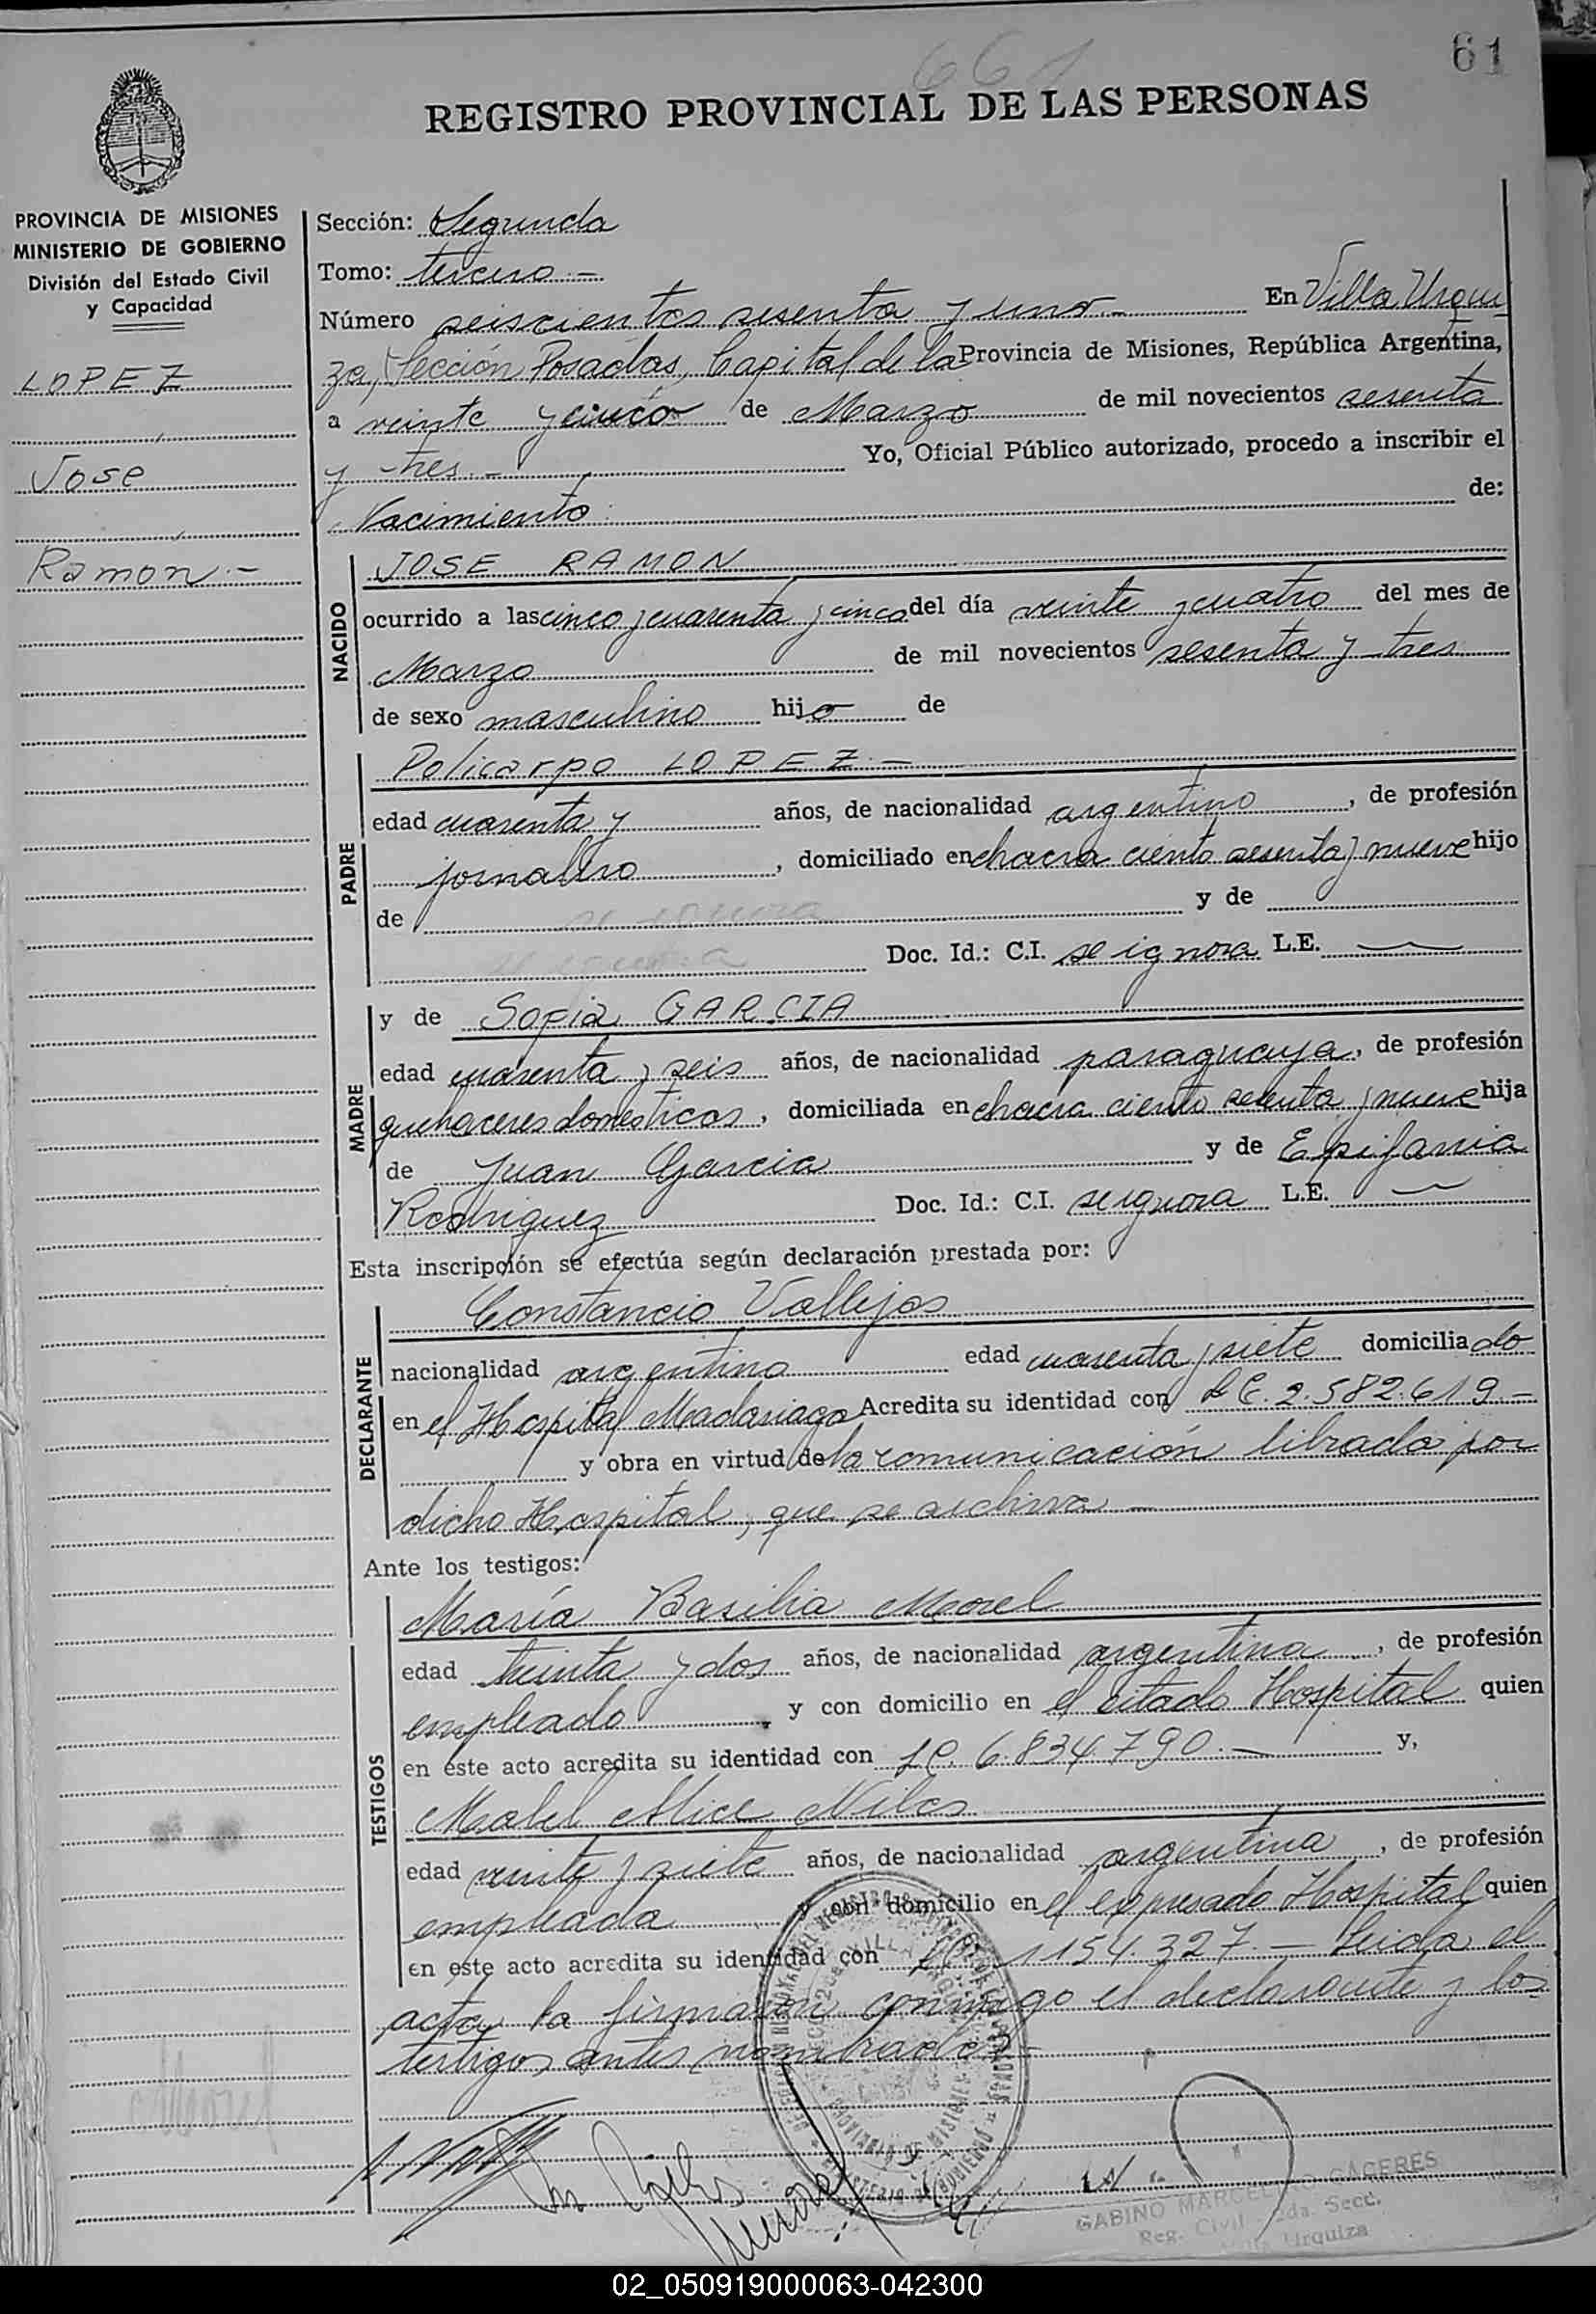 661
61
REGISTRO PROVINCIAL DE LAS PERSONAS
PROVINCIA DE MISIONES
MINISTERIO DE GOBIERNO
División del Estado Civil
y Capacidad
LOPEZ
Jose
Ramón.-
Sección: Segunda
Tomo: tercero.-
Número seiscientos sesenta y uno.- En Villa Urqui
za, Sección Posadas, Capital de la Provincia de Misiones, República Argentina,
a veinte y cinco de Marzo de mil novecientos sesenta
y tres.- Yo, Oficial Público autorizado, procedo a inscribir el
Nacimiento de:
NACIDO
JOSE RAMON
ocurrido a las cinco y cuarenta y cinco del día veinte y cuatro del mes de
Marzo de mil novecientos sesenta y tres
de sexo masculino hijo de
PADRE
Policarpo LOPEZ.-
edad cuarenta y años, de nacionalidad argentino, de profesión
jornalero, domiciliado en chacra ciento sesenta y nueve hijo
de se ignora y de
se ignora Doc. Id.: C.I. se ignora L.E. —
MADRE
y de Sofia GARCIA
edad cuarenta y seis años, de nacionalidad paraguaya, de profesión
quehaceres domesticos, domiciliada en chacra ciento sesenta y nueve hija
de Juan Garcia y de Epifania
Rodriguez Doc. Id.: C.I. se ignora L.E. —
Esta inscripción se efectúa según declaración prestada por:
DECLARANTE
Constancio Vallejos
nacionalidad argentina edad cuarenta y siete domiciliado
en el Hospital Madariaga Acredita su identidad con L.E. 2.582.619.-
y obra en virtud de la comunicación librada por
dicho Hospital, que se archiva —
Ante los testigos:
TESTIGOS
María Basilia Morel
edad treinta y dos años, de nacionalidad argentina, de profesión
empleado y con domicilio en el citado Hospital quien
en este acto acredita su identidad con L.C. 6.834.790.- y,
Mabel Alice
edad veinte y siete años, de nacionalidad argentina, de profesión
empleada y con domicilio en el expresado Hospital quien
en este acto acredita su identidad con L.C. 1154.327.- Leida el
acta, la firmaron conmigo el declarante y los
testigos antes nombrados.-
Morel
GABINO MARCELINO CACERES
Reg. Civil 2da. Secc.
Villa Urquiza
02_050919000063-042300